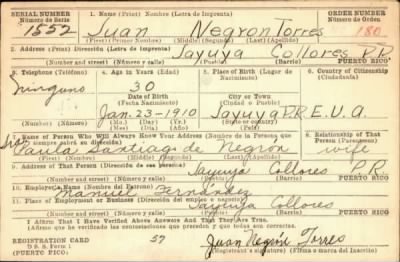 SERIAL NUMBER 1. Name (Print) Nombre (Letra de Imprenta) ORDER NUMBER
Número de Serie Número de Orden
1552 Juan Negron Torres 180
(First) (Primer Nombre) (Middle) (Segundo) (Last) (Apellido)
2. Address (Print) Dirección (Letra de Imprenta)
Jayuya Collores P.R.
(Number) (Número) (Street) (Calle) (Pueblo) (Barrio) PUERTO RICO
3. Telephone (Teléfono) 4. Age in Years (Edad) 5. Place of Birth (Lugar de Nacimiento) 6. Country of Citizenship (Ciudadanía)
ninguno 30
Date of Birth City or Town
(Fecha Nacimiento) (Ciudad o Pueblo)
Jan. 23-1910 Jayuya P.R. E.U.A.
(Mo.) (Day) (Yr.) (State or country)
(Mes) (Día) (Año)
7. Name of Person Who Will Always Know Your Address (Nombre de la Persona que siempre sabrá su dirección) 8. Relationship of That Person (Parentesco)
Sra Paula Santiago de Negrón wife
(First) (Nombre) (Middle) (Segundo) (Last) (Apellido)
9. Address of That Person (Dirección de esa persona)
Jayuya Collores P.R.
(Number) (Número) (Street) (Calle) (Pueblo) (Barrio) PUERTO RICO
10. Employer's Name (Nombre del Patrono)
Manuel Fernández
11. Place of Employment or Business (Dirección del empleo o negocio)
Jayuya Collores
(Number) (Número) (Street) (Calle) (Pueblo) (Barrio) PUERTO RICO
I Affirm That I Have Verified Above Answers And That They Are True.
(Afirmo que he verificado las contestaciones que preceden y que todas son correctas.)
REGISTRATION CARD 57 Juan Negrón Torres
D S S. Form 1 (Registrant's signature) (Firma o marca del Inscrito)
(PUERTO RICO)